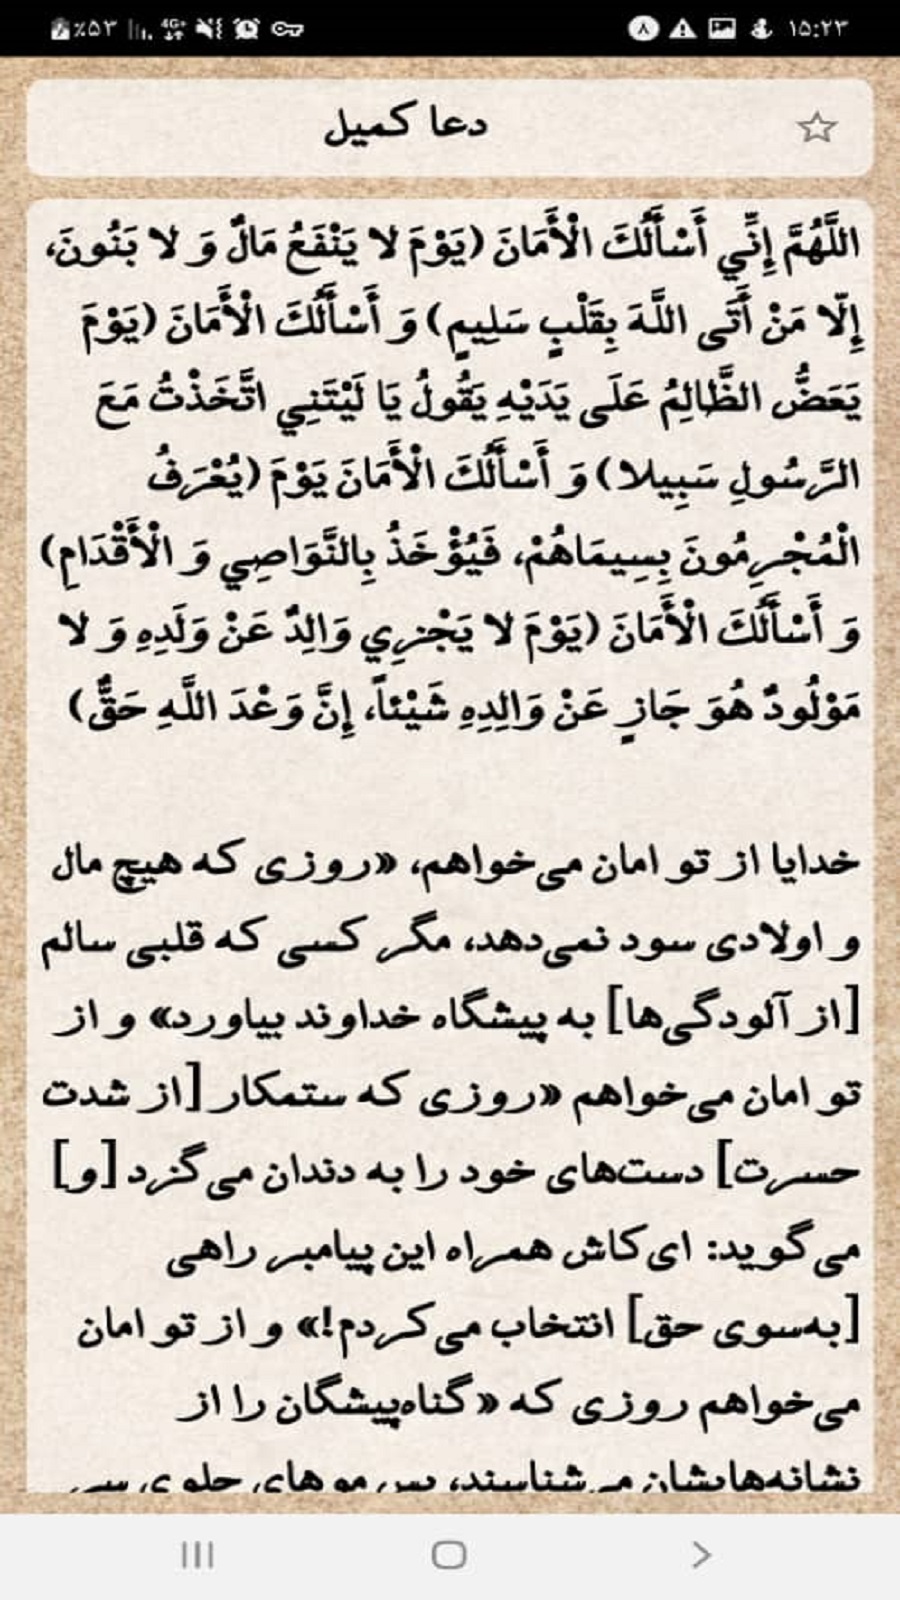 ٪۵۳ 4G+ ۸ ۱۵:۲۳
دعا کمیل
اللَّهُمَّ إِنِّي أَسْأَلُكَ الْأَمَانَ (يَوْمَ لا يَنْفَعُ مَالٌ وَ لا بَنُونَ،
إِلّا مَنْ أَتَى اللَّهَ بِقَلْبٍ سَلِيمٍ) وَ أَسْأَلُكَ الْأَمَانَ (يَوْمَ
يَعَضُّ الظَّالِمُ عَلَى يَدَيْهِ يَقُولُ يَا لَيْتَنِي اتَّخَذْتُ مَعَ
الرَّسُولِ سَبِيلا) وَ أَسْأَلُكَ الْأَمَانَ يَوْمَ (يُعْرَفُ
الْمُجْرِمُونَ بِسِيمَاهُمْ، فَيُؤْخَذُ بِالنَّوَاصِي وَ الْأَقْدَامِ)
وَ أَسْأَلُكَ الْأَمَانَ (يَوْمَ لا يَجْزِي وَالِدٌ عَنْ وَلَدِهِ وَ لا
مَوْلُودٌ هُوَ جَازٍ عَنْ وَالِدِهِ شَيْئاً، إِنَّ وَعْدَ اللَّهِ حَقٌّ)
خدایا از تو امان می‌خواهم، «روزی که هیچ مال
و اولادی سود نمی‌دهد، مگر کسی که قلبی سالم
[از آلودگی‌ها] به پیشگاه خداوند بیاورد» و از
تو امان می‌خواهم «روزی که ستمکار [از شدت
حسرت] دست‌های خود را به دندان می‌گزد [و]
می‌گوید: ای‌کاش همراه این پیامبر راهی
[به‌سوی حق] انتخاب می‌کردم!» و از تو امان
می‌خواهم روزی که «گناه‌پیشگان را از
نشانه‌هایشان می‌شناسند، پس موهای جلوی سر